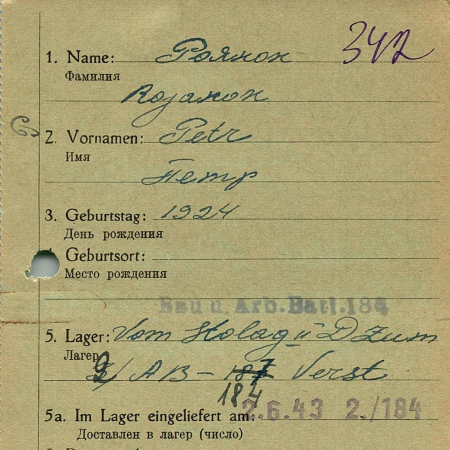 342
1. Name: Роянок
Фамилия
Rojanok
2. Vornamen: Petr
Имя
Петр
3. Geburtstag: 1924
День рождения
Geburtsort:
Место рождения
Bau u. Arb. Batl. 184
5. Lager: Vom Stalag II D zum
Лагер
2/ AB - 187 Verst
184
5a. Im Lager eingeliefert am: 2.6.43 2./184
Доставлен в лагер (число)